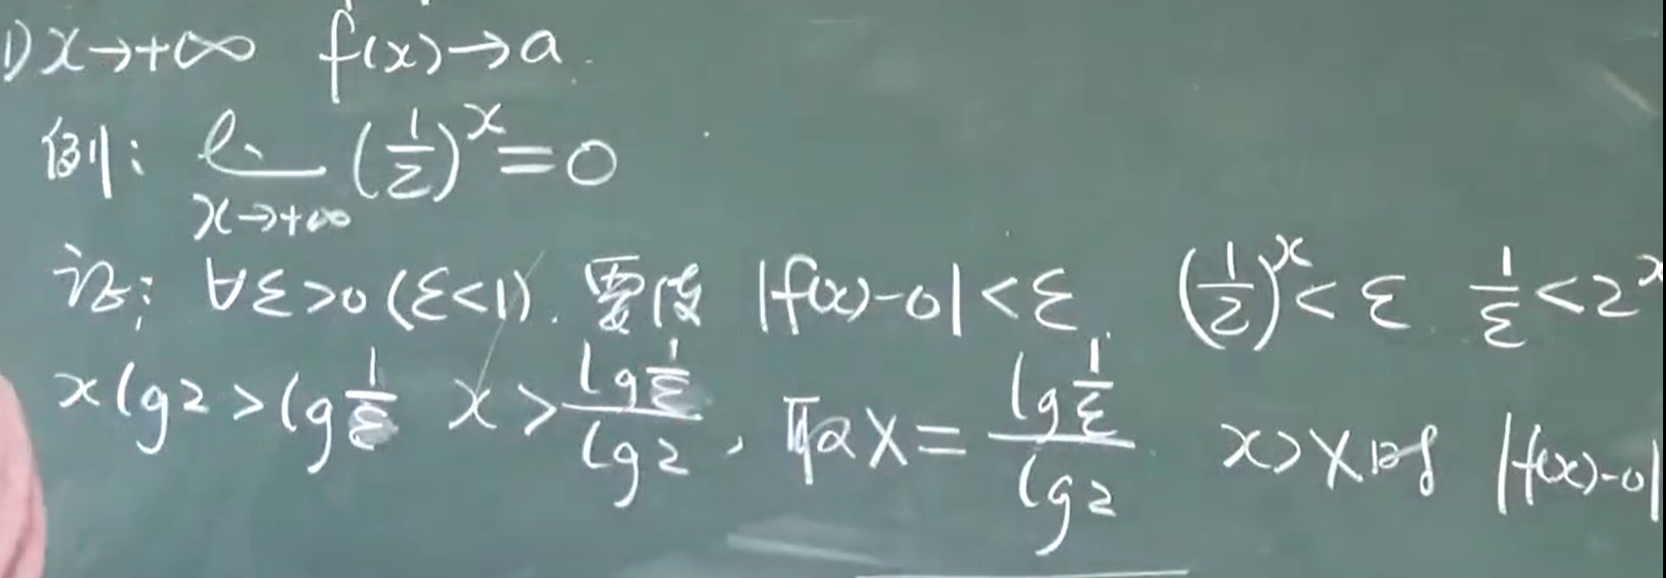 1) x→+∞ f(x)→a.
例: lim x→+∞ (1/2)^x = 0
证: ∀ε>0 (ε<1). 要使 |f(x)-0|<ε. (1/2)^x<ε. 1/ε<2^x
x lg2 > lg 1/ε x > lg 1/ε / lg2, 取X = lg 1/ε / lg2. x>X时 |f(x)-0|